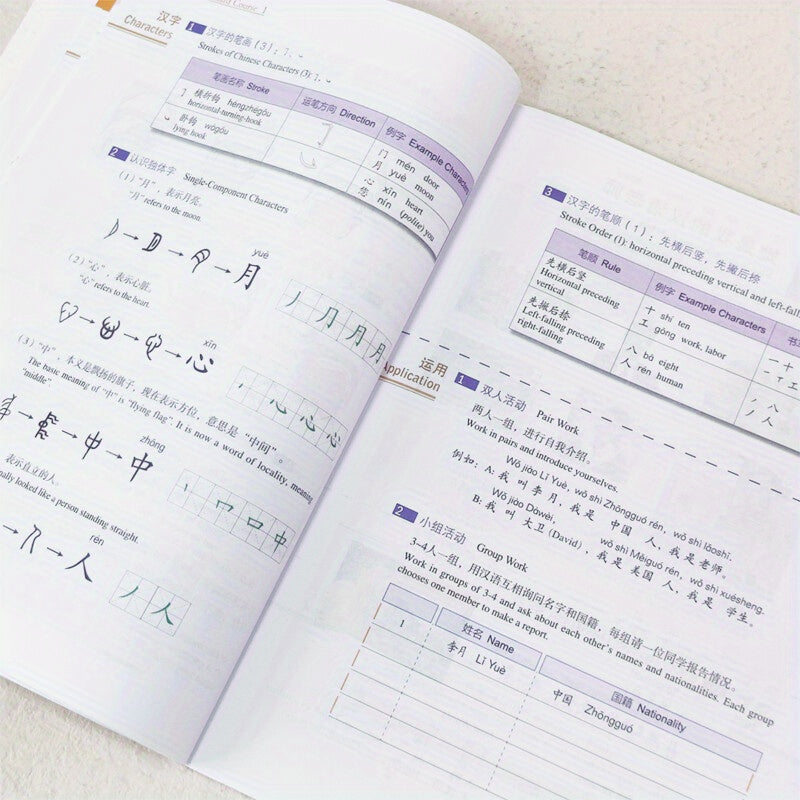 Course 1
汉字
Characters
1 汉字的笔画(3):㇆、㇃
Strokes of Chinese Characters (3): ㇆、㇃
笔画名称 Stroke 运笔方向 Direction 例字 Example Characters
㇆ 横折钩 héngzhégōu
horizontal-turning-hook
门 mén door
月 yuè moon
㇃ 卧钩 wògōu
lying hook
心 xīn heart
您 nín (polite) you
2 认识独体字 Single-Component Characters
(1)“月”,表示月亮。
“月” refers to the moon.
yuè
→ → → 月
月 月
(2)“心”,表示心脏。
“心” refers to the heart.
xīn
→ → → 心
心 心 心
(3)“中”,本义是飘扬的旗子,现在表示方位,意思是“中间”。
The basic meaning of “中” is “flying flag”. It is now a word of locality, meaning
“middle”.
zhōng
→ → 中 → 中
丨 口 口 中
表示直立的人。
nally looked like a person standing straight.
rén
→ → 人
丿 人
3 汉字的笔顺(1):先横后竖,先撇后捺
Stroke Order (1): horizontal preceding vertical and left-fal
笔顺 Rule 例字 Example Characters 书
先横后竖
Horizontal preceding
vertical
十 shí ten
工 gōng work, labor
一 十
一 丁 工
先撇后捺
Left-falling preceding
right-falling
八 bā eight
人 rén human
丿 八
丿 人
运用
Application
1 双人活动 Pair Work
两人一组,进行自我介绍。
Work in pairs and introduce yourselves.
Wǒ jiào Lǐ Yuè, wǒ shì Zhōngguó rén, wǒ shì lǎoshī.
例如:A:我 叫 李 月,我 是 中国 人,我 是 老师。
Wǒ jiào Dàwèi, wǒ shì Měiguó rén, wǒ shì xuésheng.
B:我 叫 大卫(David),我 是 美国 人,我 是 学生。
2 小组活动 Group Work
3-4人一组,用汉语互相询问名字和国籍,每组请一位同学报告情况。
Work in groups of 3-4 and ask about each other’s names and nationalities. Each group
chooses one member to make a report.
姓名 Name 国籍 Nationality
1 李月 Lǐ Yuè 中国 Zhōngguó